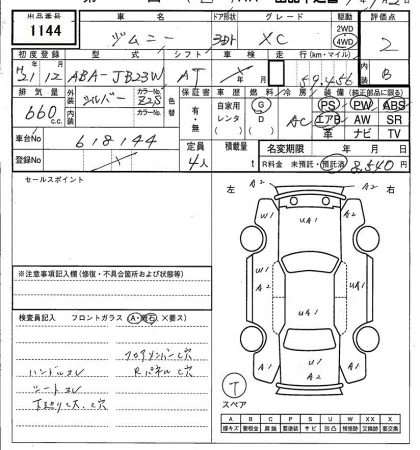 出品番号 車名 ドア形状 グレード 駆動 評価点
1144 ジムニー 3Dr XC 2WD 4WD 2
初度登録 型式 シフト 車検 走行(km・マイル) 内装
21年12月 ABA-JB23W AT 年 月 59,456 B
排気量 外装 シルバー カラーNo. Z2S 色替 車歴 燃料 冷房 装備(純正部品に限る)
660c.c. 内装 カラーNo. 有・無 自家用 レンタ G D AC PS PW ABS
エアB AW SR
革 ナビ TV
車台No. 618144 定員 積載量 名変期限 年 月 日
登録No. 4人 t R料金 未預託・預託済 8,540円
セールスポイント 左 A2 A2 右
※注意事項記入欄(修復・不具合箇所および状態等)
W1 UA1 A1
W1 A2 UA1 A1
U1
A2 A2 A2
検査員記入 フロントガラス (A・飛石・X要ス)
ハンドルスレ
シートスレ
Rパネルに穴
T
スペア
A B C P S U W X XX
線キズ 要鈑金 腐蝕 要塗装 サビ 凹凸 補修跡 要交換